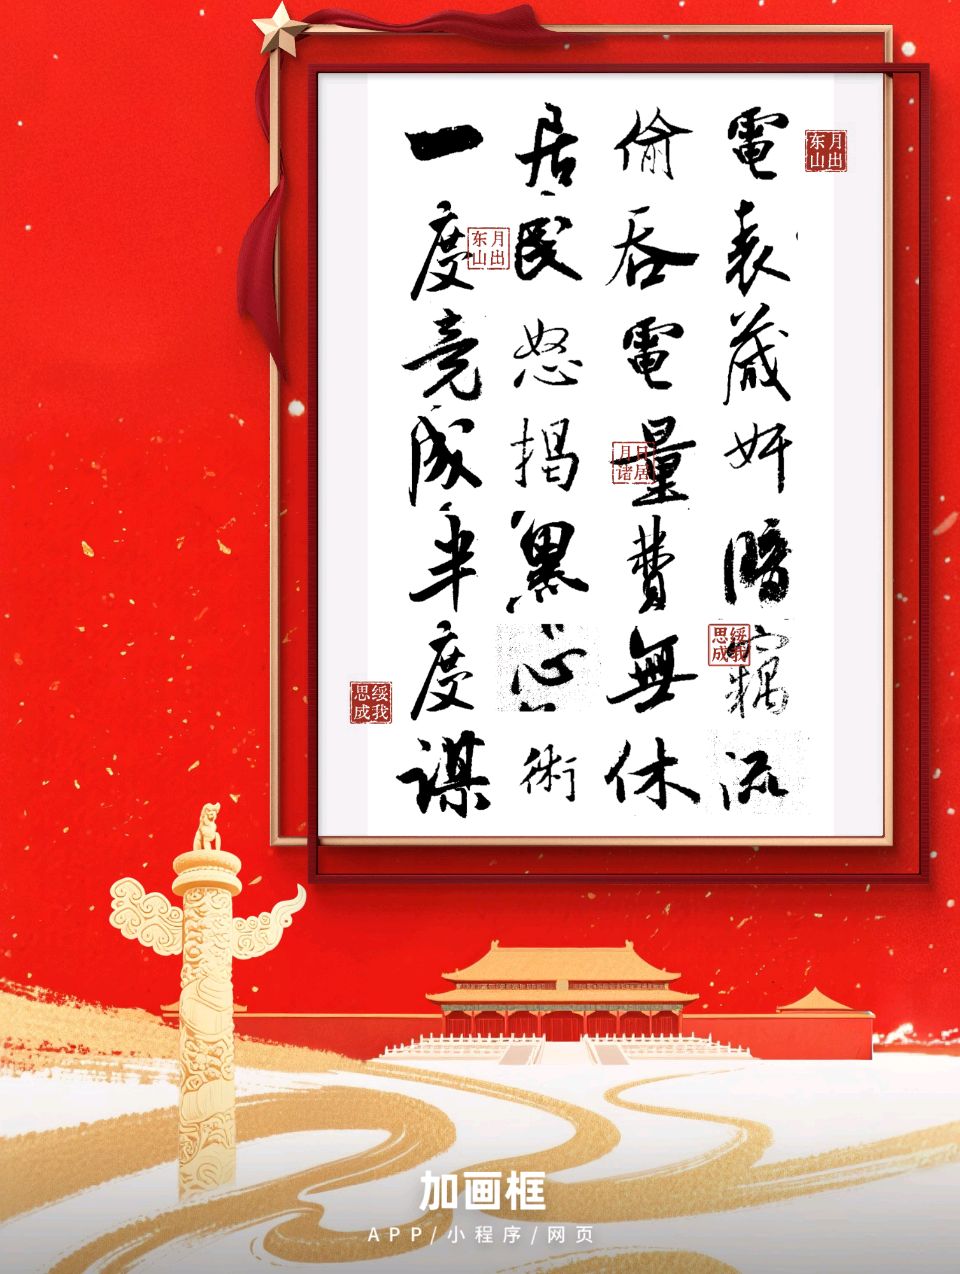 電表藏奸暗竊流
偷吞電量費無休
居民怒揭黑心術
一度竟成半度謀
月出东山
月出东山
日居月诸
绥我思成
绥我思成
加画框
APP/小程序/网页